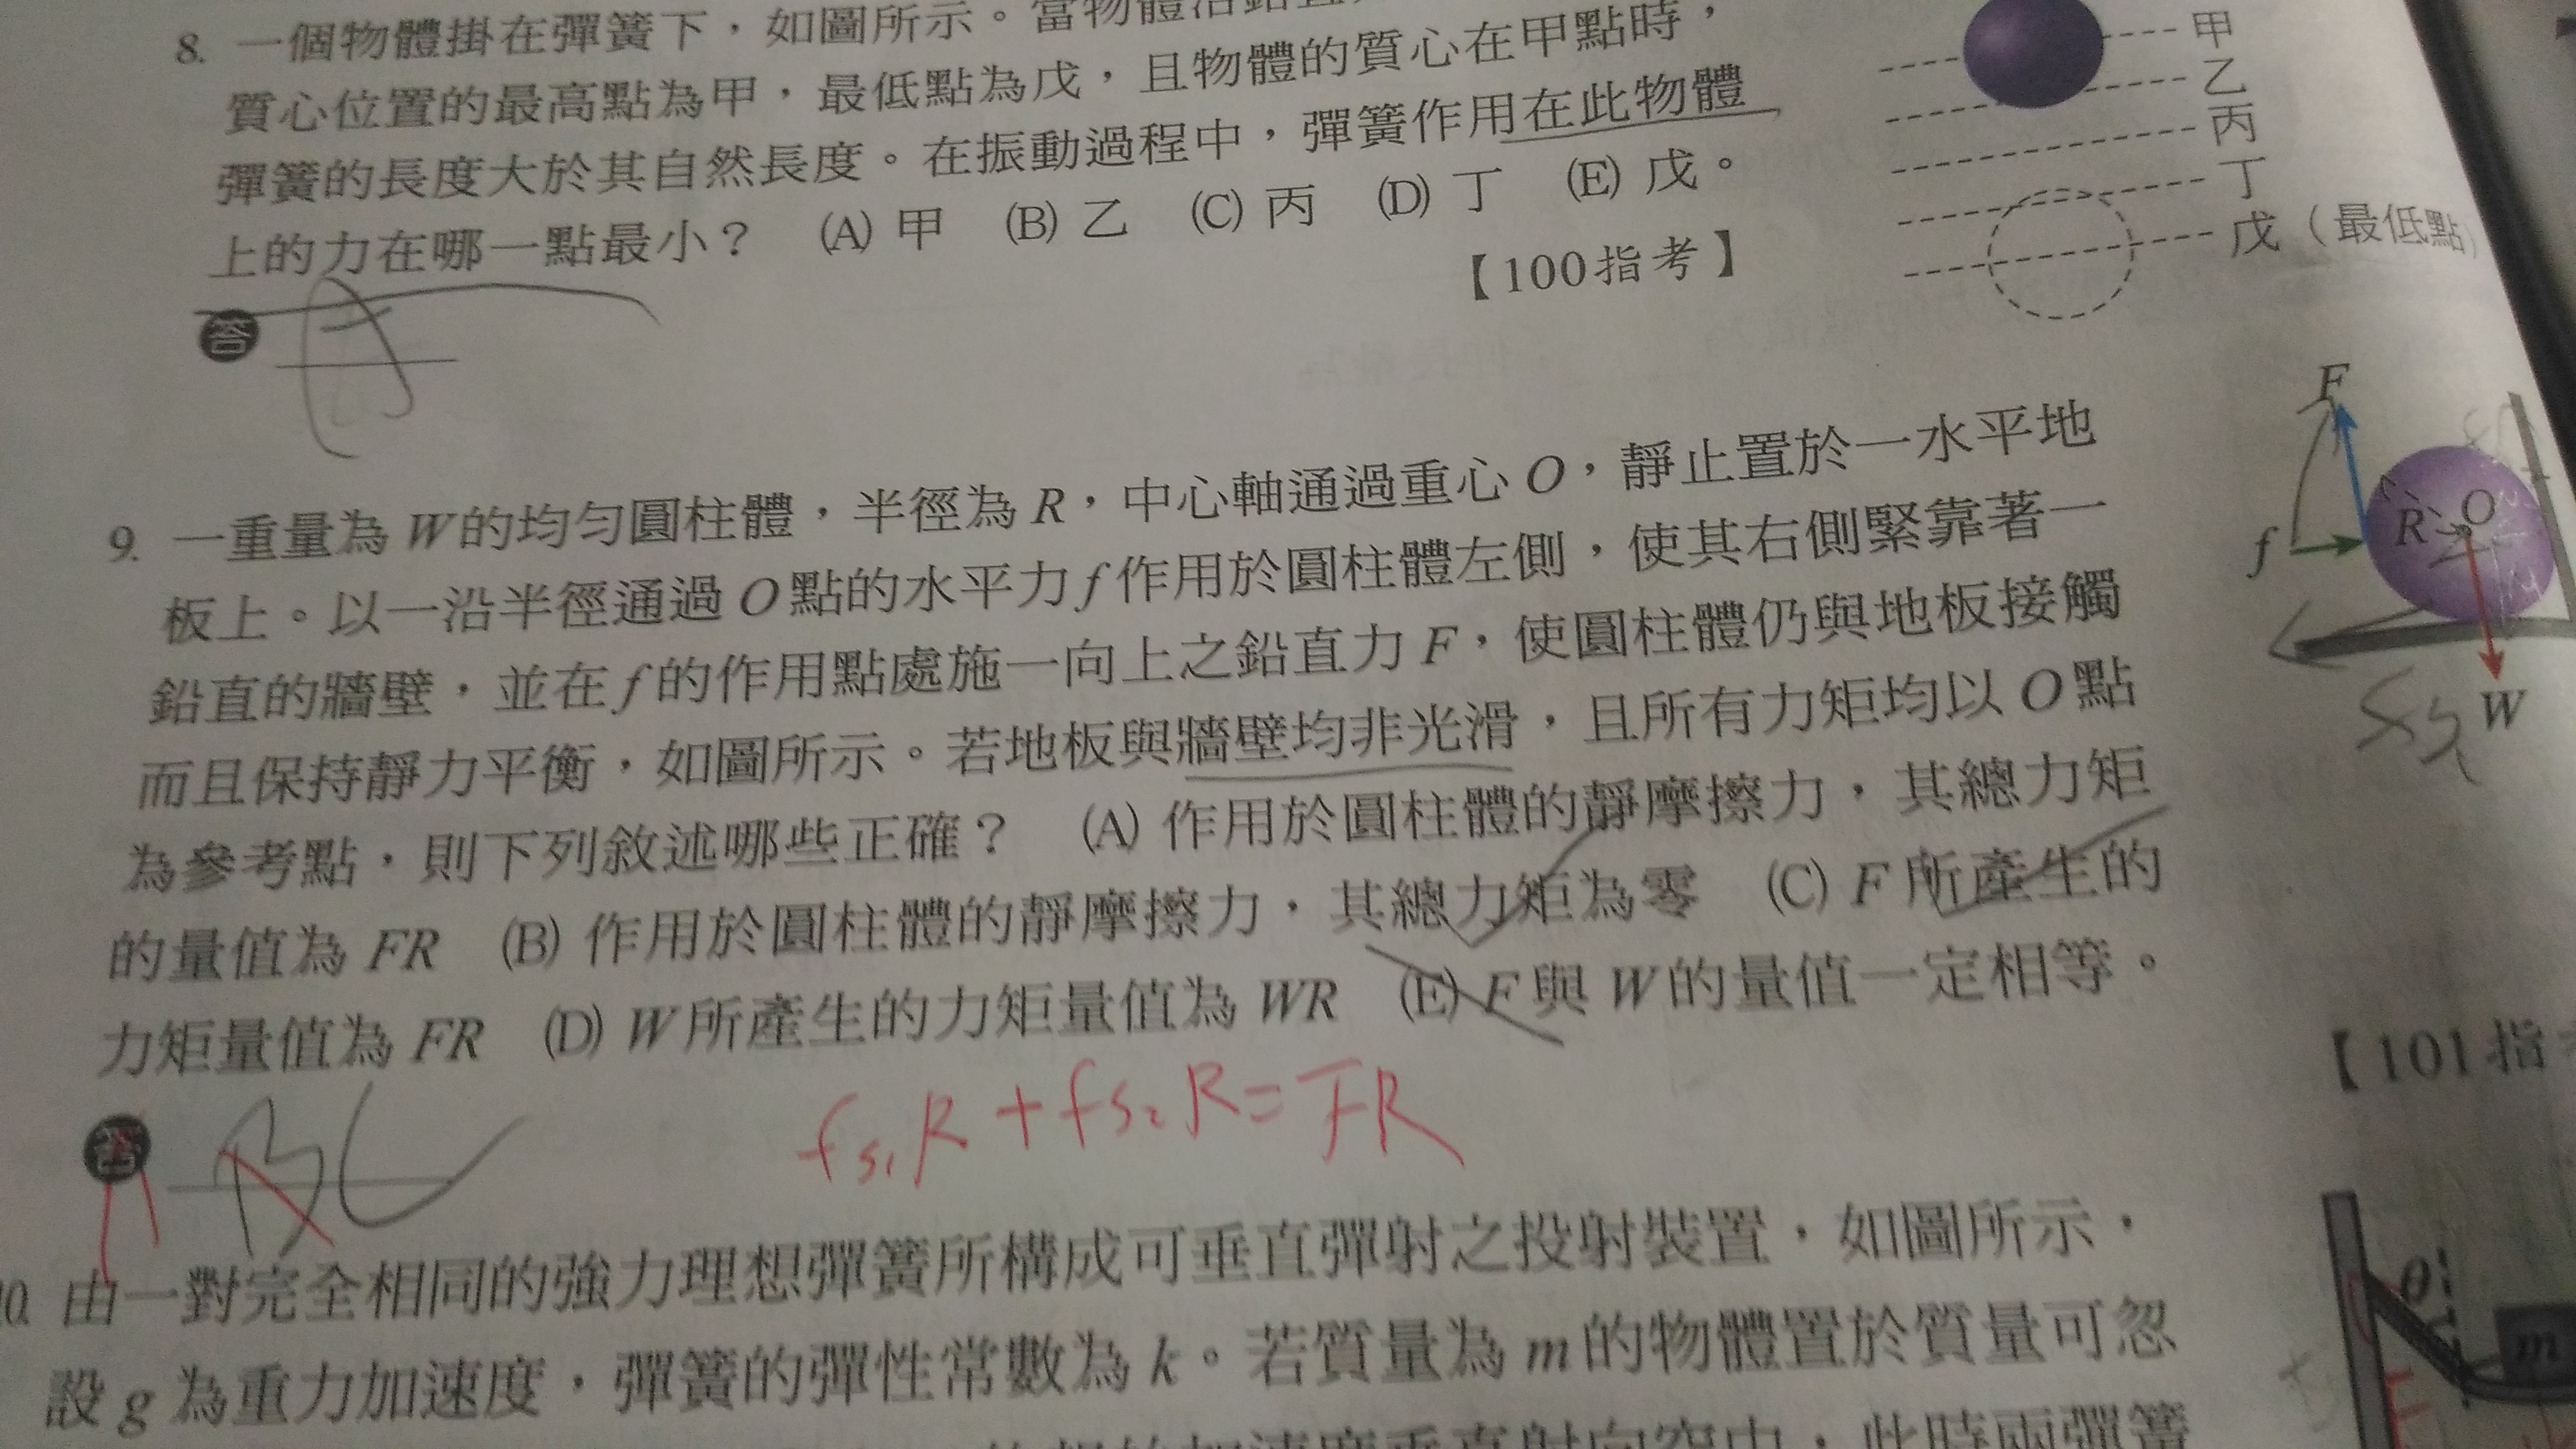 8. 一個物體掛在彈簧下，如圖所示。當物體沿鉛直
質心位置的最高點為甲，最低點為戊，且物體的質心在甲點時，
彈簧的長度大於其自然長度。在振動過程中，彈簧作用在此物體
上的力在哪一點最小？ (A) 甲 (B) 乙 (C) 丙 (D) 丁 (E) 戊。
【100指考】
甲
乙
丙
丁
戊（最低點）
答
9. 一重量為 W的均勻圓柱體，半徑為 R，中心軸通過重心 O，靜止置於一水平地
板上。以一沿半徑通過 O 點的水平力 f 作用於圓柱體左側，使其右側緊靠著一
鉛直的牆壁，並在 f 的作用點處施一向上之鉛直力 F，使圓柱體仍與地板接觸
而且保持靜力平衡，如圖所示。若地板與牆壁均非光滑，且所有力矩均以 O 點
為參考點，則下列敘述哪些正確？ (A) 作用於圓柱體的靜摩擦力，其總力矩
的量值為 FR (B) 作用於圓柱體的靜摩擦力，其總力矩為零 (C) F 所產生的
力矩量值為 FR (D) W 所產生的力矩量值為 WR (E) F 與 W 的量值一定相等。
【101指
F
f
R
O
W
答 BC
A
fs₁R + fs₂R = FR
10. 由一對完全相同的強力理想彈簧所構成可垂直彈射之投射裝置，如圖所示，
設 g 為重力加速度，彈簧的彈性常數為 k。若質量為 m 的物體置於質量可忽
θ
m